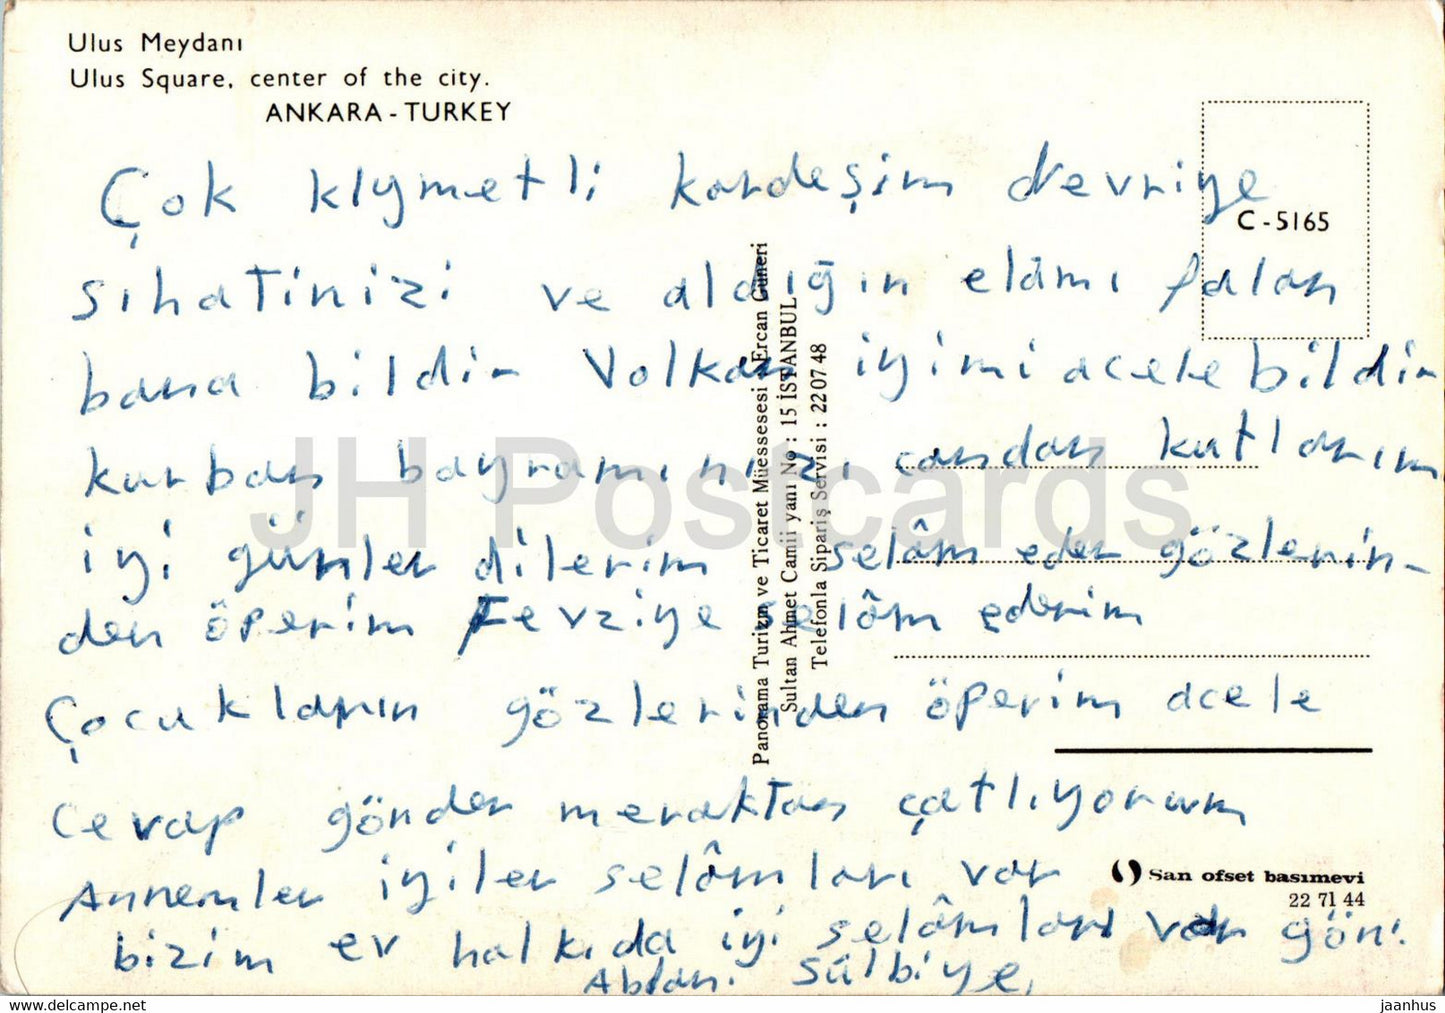 Ulus Meydanı
Ulus Square, center of the city.
ANKARA - TURKEY
C - 5165
Çok kıymetli kardeşim devriye
sıhatinizi ve aldığın elâmı falan
bana bildir Volkan iyimi acele bildir
kurban bayramınızı candan kutlarım
iyi günler dilerim selâm eder gözlerin-
den öperim Fevziye selâm ederim
Çocukların gözlerinden öperim acele
cevap gönder meraktan çatlıyorum
Annemler iyiler selâmları var
bizim ev halkıda iyi selâmları var gön.
Ablan. Sülbiye,
Panorama Turizm ve Ticaret Müessesesi Ercan Güneri
Sultan Ahmet Camii yanı No : 15 İSTANBUL
Telefonla Sipariş Servisi : 22 07 48
San ofset basımevi
22 71 44
JH Postcards
www.delcampe.net
jaanhus